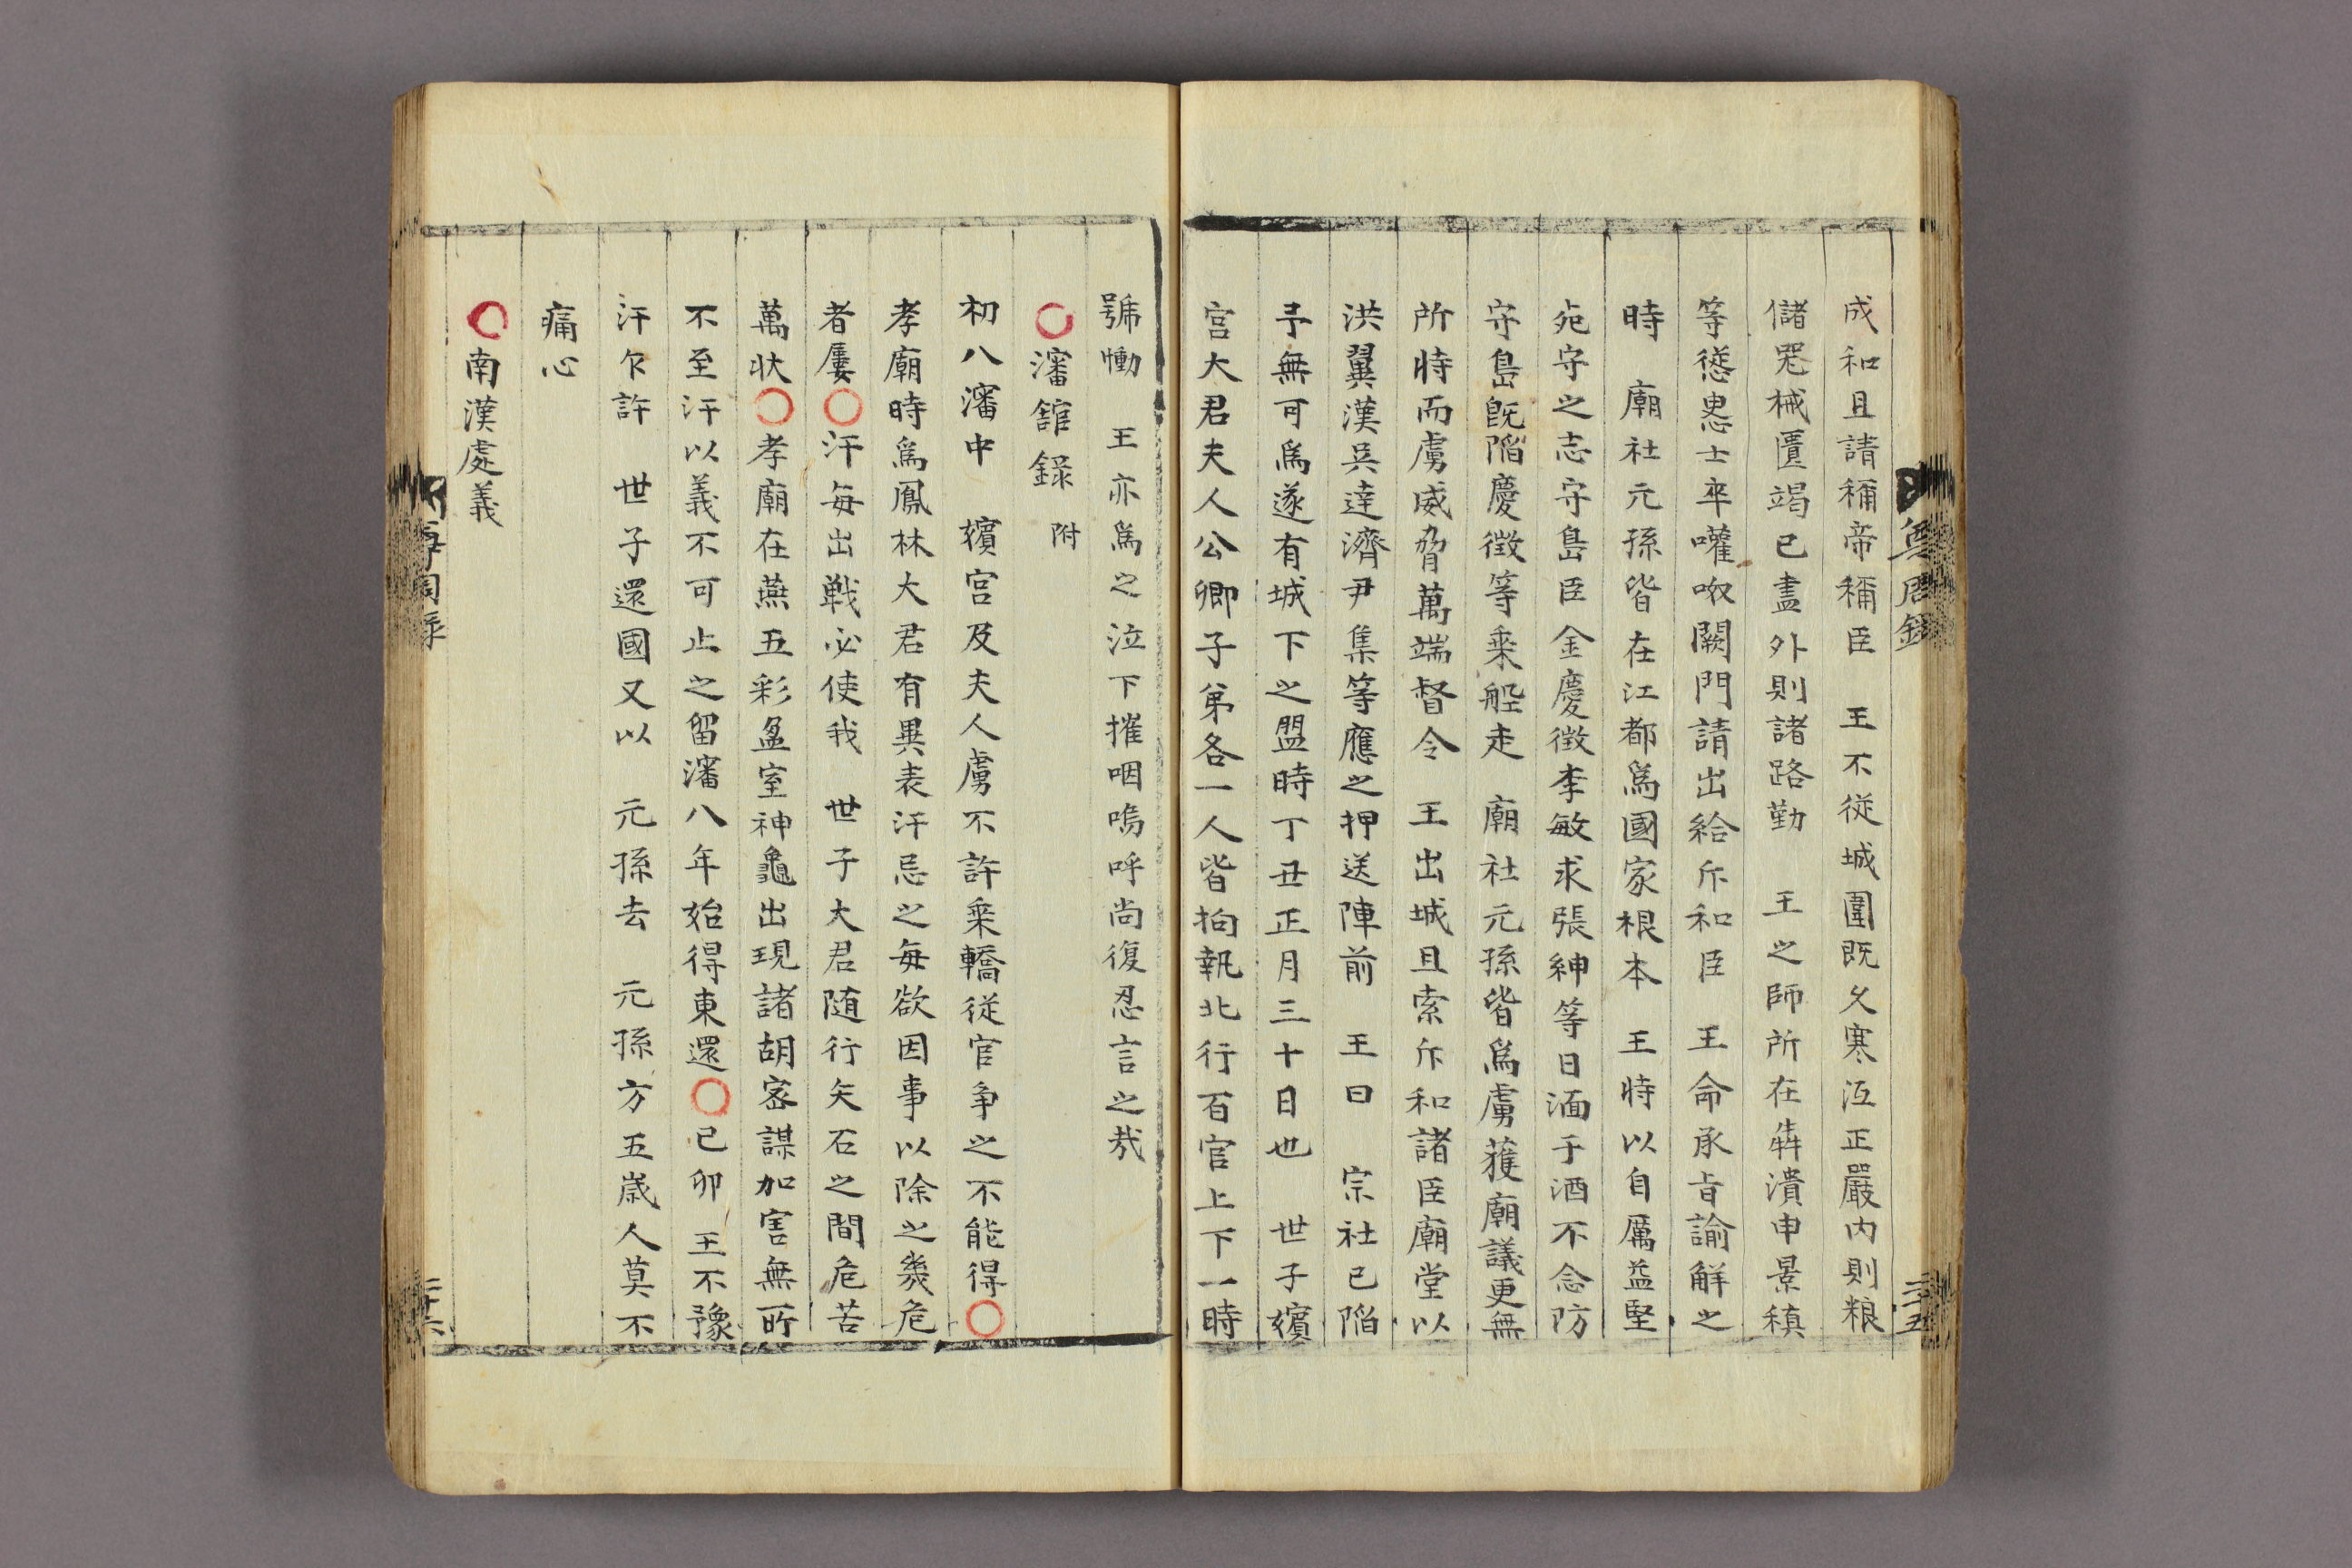 尊周錄
二十五
成和且請稱帝稱臣 王不從城圍旣久寒沍正嚴內則粮
儲器械匱竭已盡外則諸路勤 王之師所在犇潰申景禛
等慫恿士卒嚾呶闕門請出給斥和臣 王命承旨諭解之
時 廟社元孫皆在江都爲國家根本 王時以自厲益堅
死守之志守島臣金慶徵李敏求張紳等日湎于酒不念防
守島旣陷慶徵等乘船走 廟社元孫皆爲虜獲廟議更無
所恃而虜威脅萬端督令 王出城且索斥和諸臣廟堂以
洪翼漢吳達濟尹集等應之押送陣前 王曰 宗社已陷
予無可爲遂有城下之盟時丁丑正月三十日也 世子嬪
宮大君夫人公卿子弟各一人皆拘執北行百官上下一時
號慟 王亦爲之泣下摧咽嗚呼尚復忍言之哉
○瀋舘錄 附
初八瀋中 嬪宮及夫人虜不許乘轎從官爭之不能得○
孝廟時爲鳳林大君有異表汗忌之每欲因事以除之幾危
者屢○汗每出戰必使我 世子大君随行矢石之間危苦
萬狀○孝廟在燕五彩盈室神龜出現諸胡密謀加害無所
不至汗以義不可止之留瀋八年始得東還○己卯 王不豫
汗乍許 世子還國又以 元孫去 元孫方五歲人莫不
痛心
○南漢處義
尊周錄
二十六